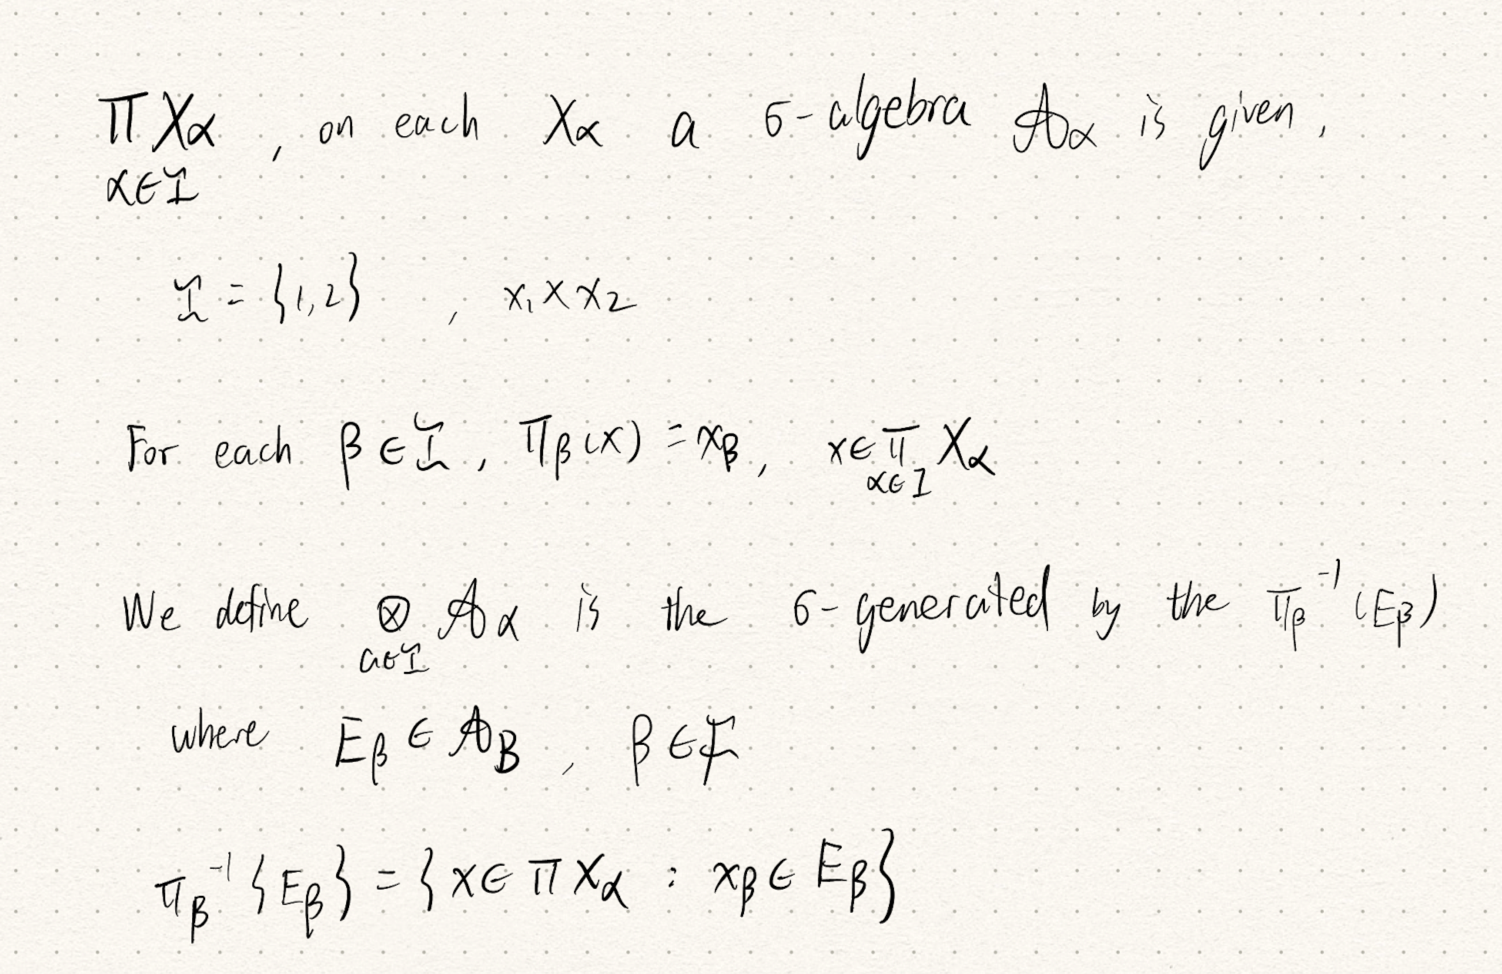 ∏ Xα , on each Xα a σ-algebra 𝒜α is given,
α∈I
I = {1,2} , x₁ × x₂
For each β ∈ I, πβ(x) = xβ, x∈ ∏ Xα
α∈I
We define ⊗ 𝒜α is the σ-generated by the πβ⁻¹(Eβ)
α∈I
where Eβ ∈ 𝒜β , β ∈ I
πβ⁻¹{Eβ} = {x∈ ∏ Xα : xβ ∈ Eβ}